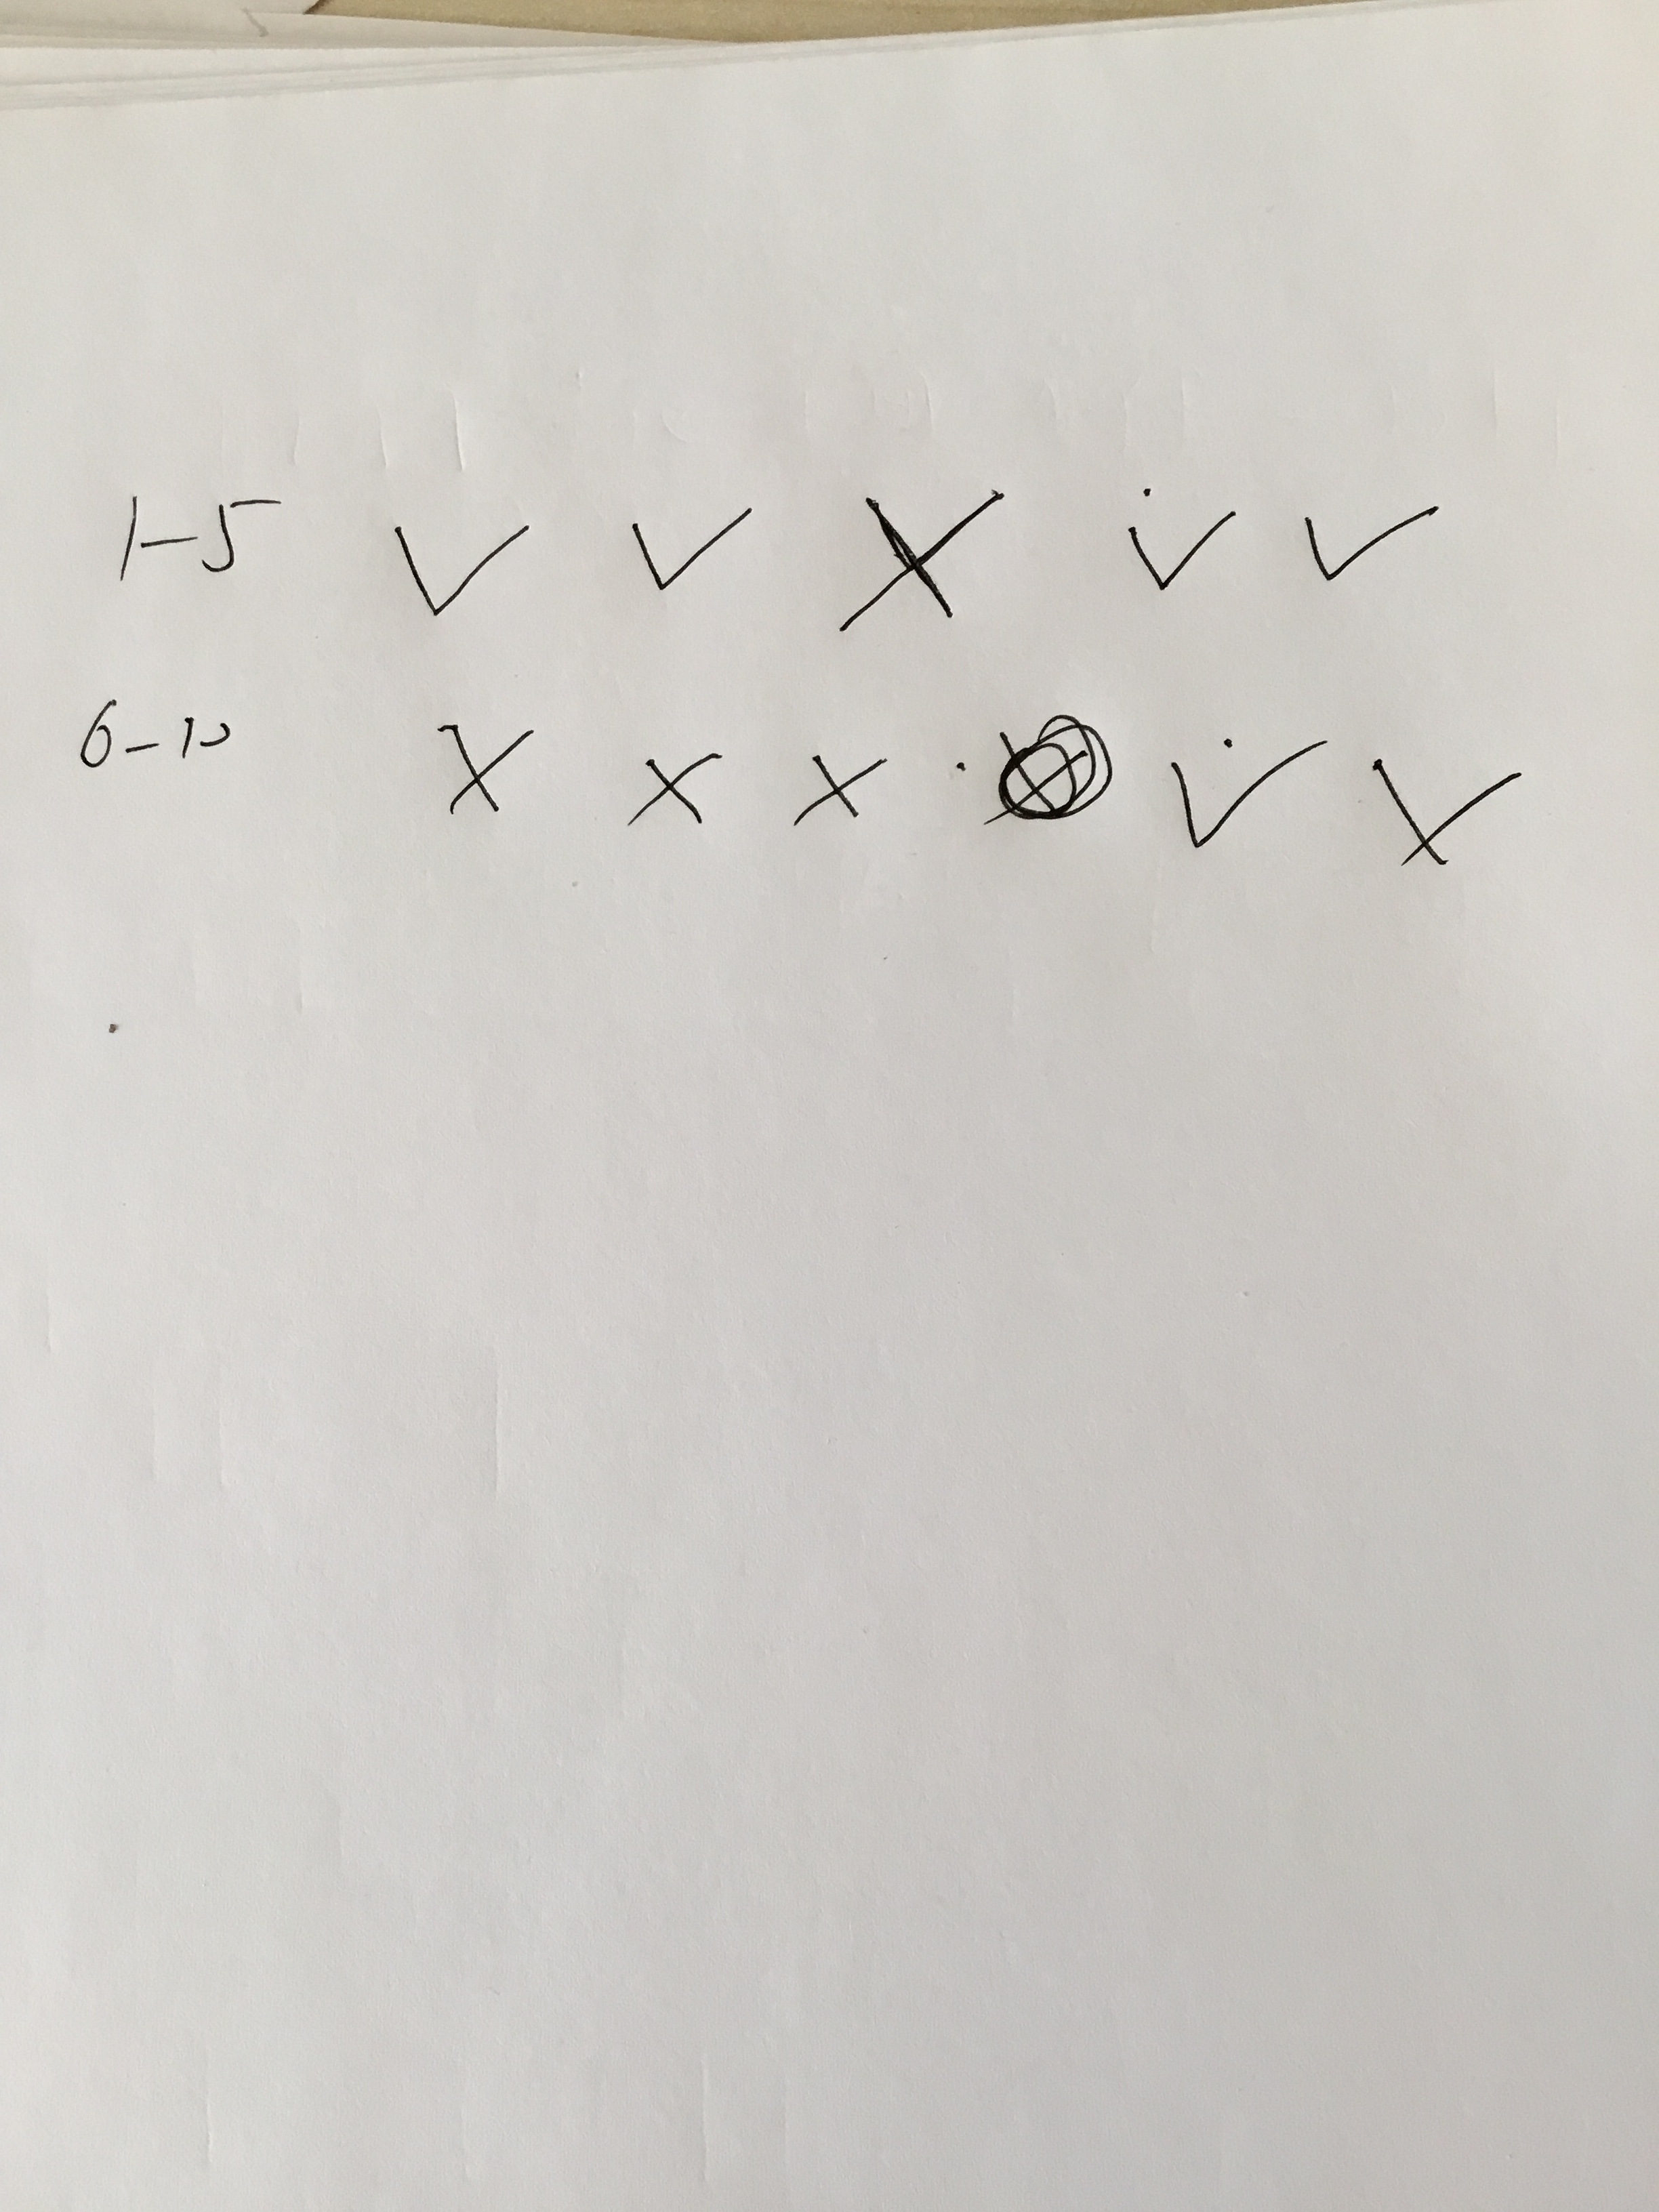 1-5 √ √ × √ √
6-10 × × × √ ×